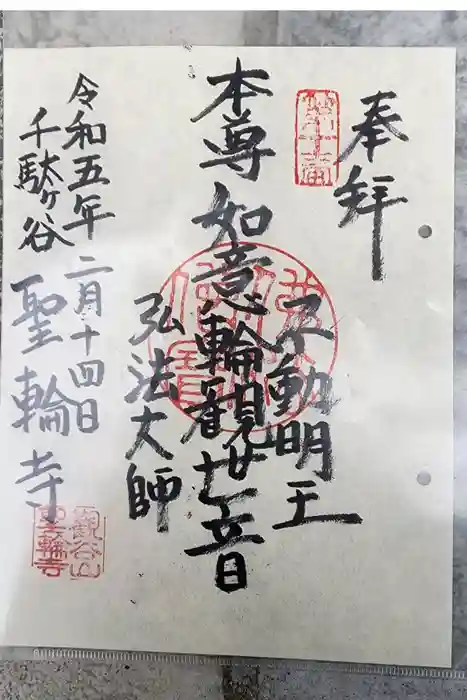 奉拝
不動明王
本尊 如意輪観世音
弘法大師
令和五年二月十四日
千駄ヶ谷 聖輪寺
観谷山
聖輪寺